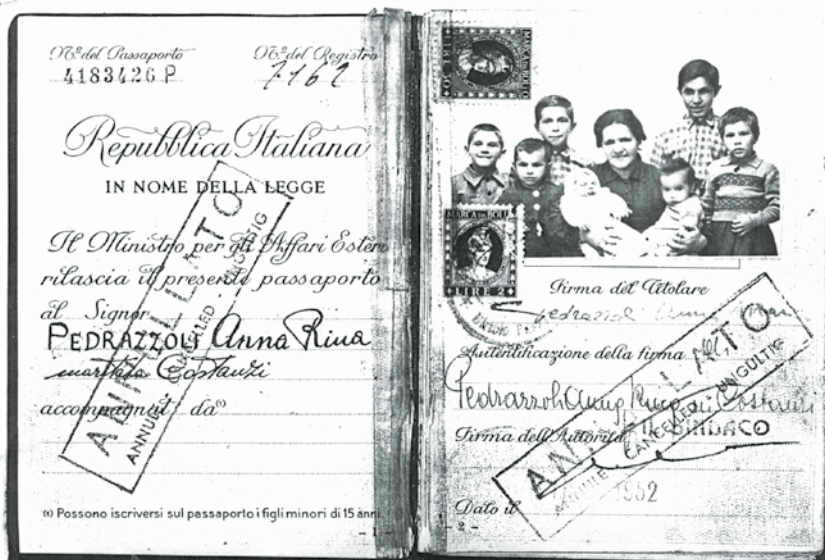 N.º del Passaporto N.º del Registro
4183426 P 7162
Repubblica Italiana
IN NOME DELLA LEGGE
Il Ministro per gli Affari Esteri
rilascia il presente passaporto
al Signor
PEDRAZZOLI Anna Rina
maritata Costanzi
accompagnat da(1)
ANNULLATO
ANNULÉ CANCELLED UNGÜLTIG
(1) Possono iscriversi sul passaporto i figli minori di 15 anni.
- 1 -
MARCA DA BOLLO
MARCA DA BOLLO
LIRE 2
Firma del Titolare
Pedrazzoli Anna
Autentificazione della firma
Pedrazzoli Anna Rina in Costanzi
Firma dell'Autorità IL SINDACO
ANNULLATO
ANNULÉ CANCELLED UNGÜLTIG
1952
Dato il